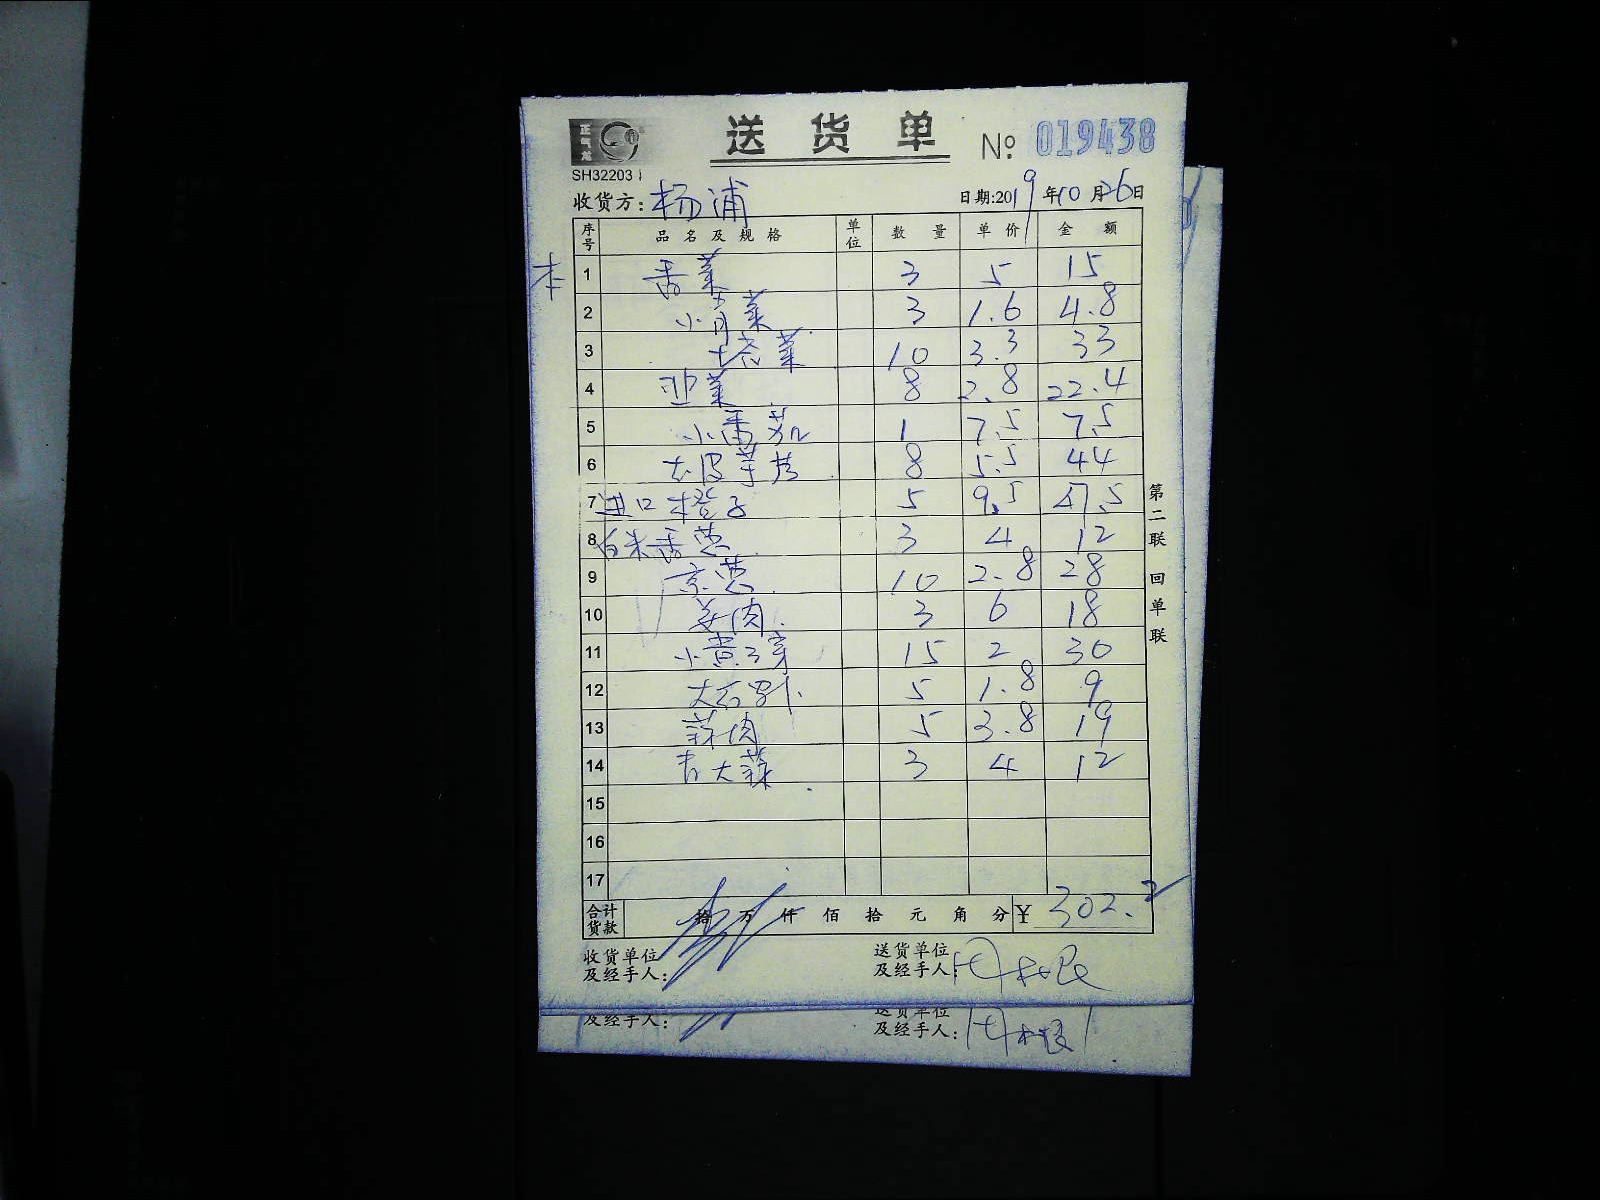 送货单 № 019438
正气龙
SH32203
收货方: 杨浦 日期:2019年10月26日
序号 品名及规格 单位 数量 单价 金额
本
1 香菜 3 5 15
2 小青菜 3 1.6 4.8
3 塔菜 10 3.3 33
4 韭菜 8 2.8 22.4
5 小番茄 1 7.5 7.5
6 去皮芋艿 8 5.5 44
7 进口橙子 5 9.5 47.5
8 白米香葱 3 4 12
9 京葱 10 2.8 28
10 姜肉 3 6 18
11 小黄豆芽 15 2 30
12 大石 5 1.8 9
13 蒜肉 5 3.8 19
14 青大蒜 3 4 12
15
16
17
合计货款 拾 万 仟 佰 拾 元 角 分 ¥ 302.2
收货单位 送货单位
及经手人: 及经手人:
第二联 回单联
送货单位
及经手人: 及经手人: